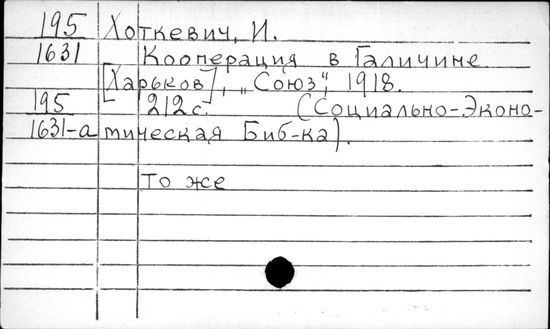 195 Хоткевич, И.
1631 Кооперация в Галичине
[Харьков], „Союз“, 1918.
195 212 с. (Социально-Эконо-
1631-а мическая Биб-ка).
То же